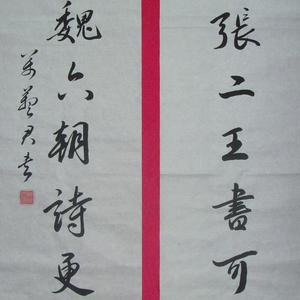 張二王書可
魏六朝詩更